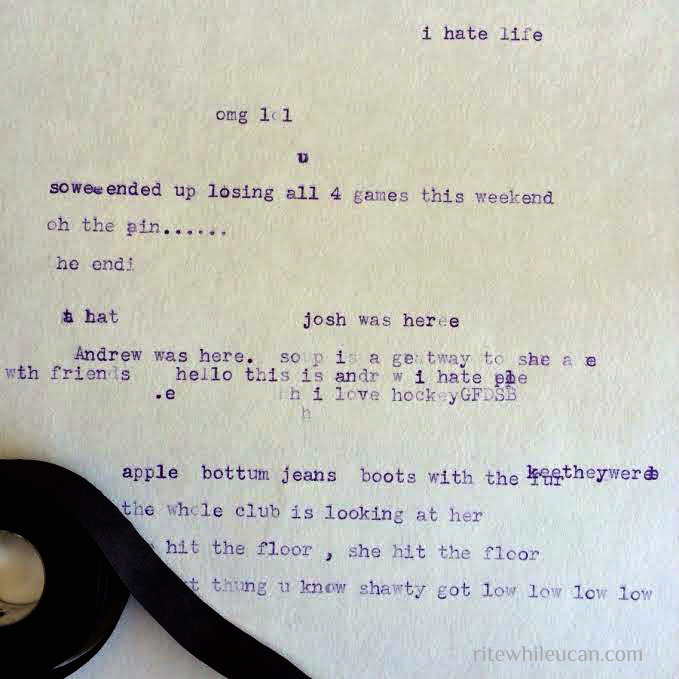 i hate life
omg lol
u
sowe ended up losing all 4 games this weekend
oh the pin......
he endi
a hat josh was heree
Andrew was here. soup is a geatway to she a e
wth friends hello this is andr w i hate
.e h i love hockeyGFDSB
h
apple bottum jeans boots with the fur theywere
the whole club is looking at her
hit the floor , she hit the floor
t thung u know shawty got low low low low
ritewhileucan.com